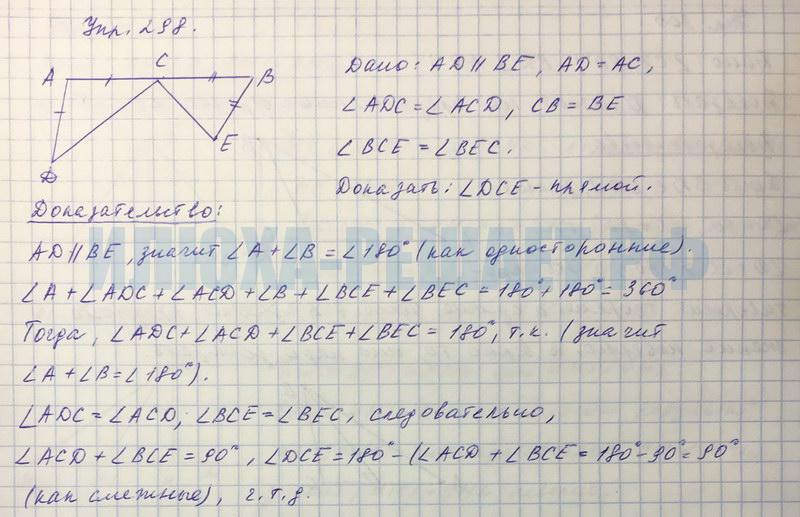 Упр. 298.
A C B
E
D
Дано: AD || BE, AD = AC,
∠ADC = ∠ACD, CB = BE
∠BCE = ∠BEC.
Доказать: ∠DCE - прямой.
Доказательство:
AD || BE, значит ∠A + ∠B = ∠180° (как односторонние).
ИЛЮХА-РЕШАЕТ.РФ
∠A + ∠ADC + ∠ACD + ∠B + ∠BCE + ∠BEC = 180° + 180° = 360°
Тогда, ∠ADC + ∠ACD + ∠BCE + ∠BEC = 180°, т.к. (значит
∠A + ∠B = ∠180°).
∠ADC = ∠ACD; ∠BCE = ∠BEC, следовательно,
∠ACD + ∠BCE = 90°, ∠DCE = 180° - (∠ACD + ∠BCE = 180° - 90° = 90°
(как смежные), ч.т.д.